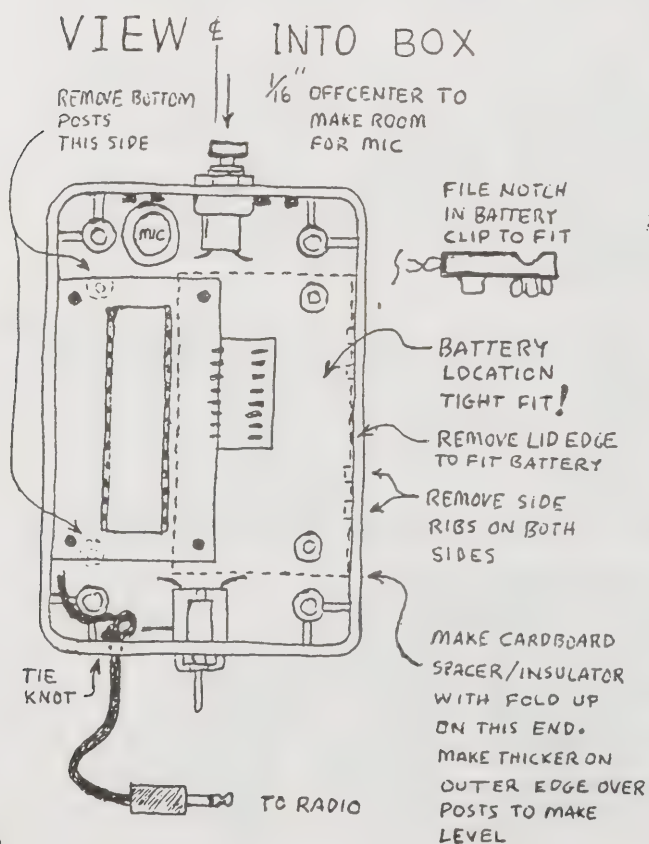 VIEW ℄ INTO BOX
1/16" OFFCENTER TO
MAKE ROOM
FOR MIC
REMOVE BOTTOM
POSTS
THIS SIDE
MIC
FILE NOTCH
IN BATTERY
CLIP TO FIT
BATTERY
LOCATION
TIGHT FIT!
REMOVE LID EDGE
TO FIT BATTERY
REMOVE SIDE
RIBS ON BOTH
SIDES
MAKE CARDBOARD
SPACER/INSULATOR
WITH FOLD UP
ON THIS END.
MAKE THICKER ON
OUTER EDGE OVER
POSTS TO MAKE
LEVEL
TIE
KNOT
TO RADIO